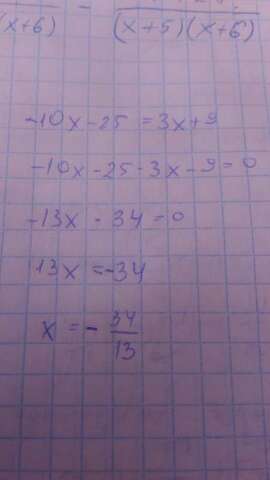 (x+6) - (x+5)(x+6)
-10x-25 = 3x+9
-10x-25-3x-9=0
-13x-34=0
13x=-34
x = - 34/13